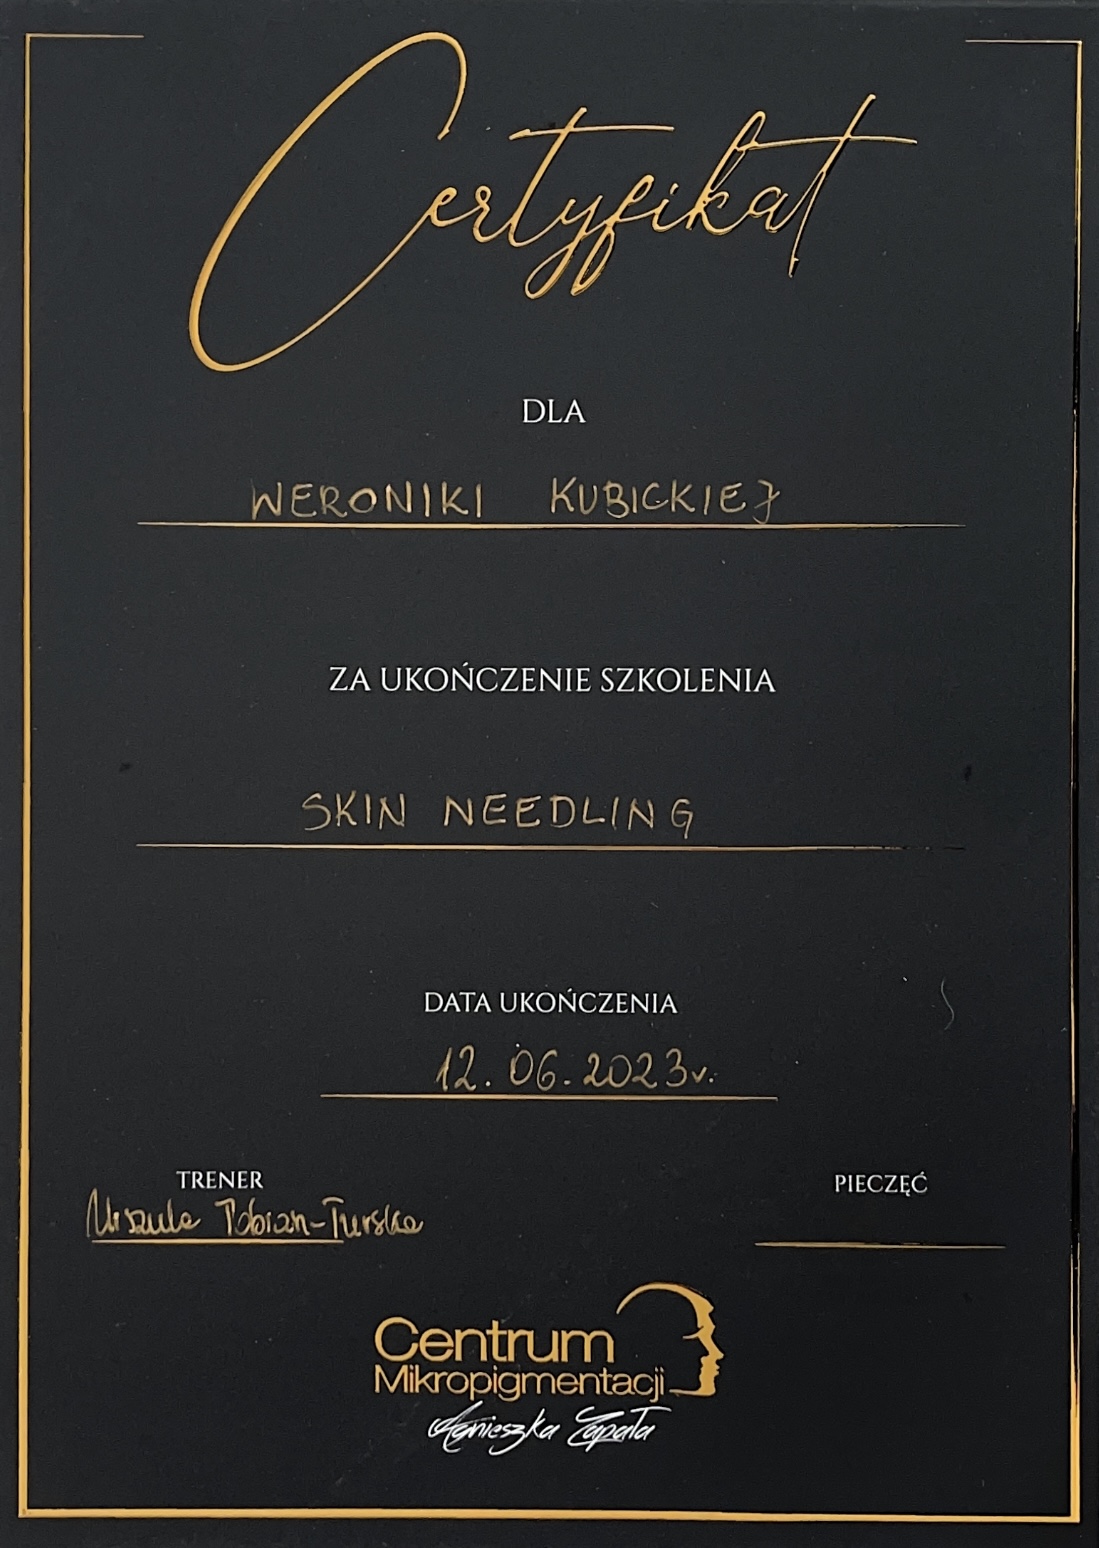 Certyfikat
DLA
WERONIKI KUBICKIEJ
ZA UKOŃCZENIE SZKOLENIA
SKIN NEEDLING
DATA UKOŃCZENIA
12.06.2023r.
TRENER
Urszula Tobian-Turska
PIECZĘĆ
Centrum
Mikropigmentacji
Agnieszka Zapała